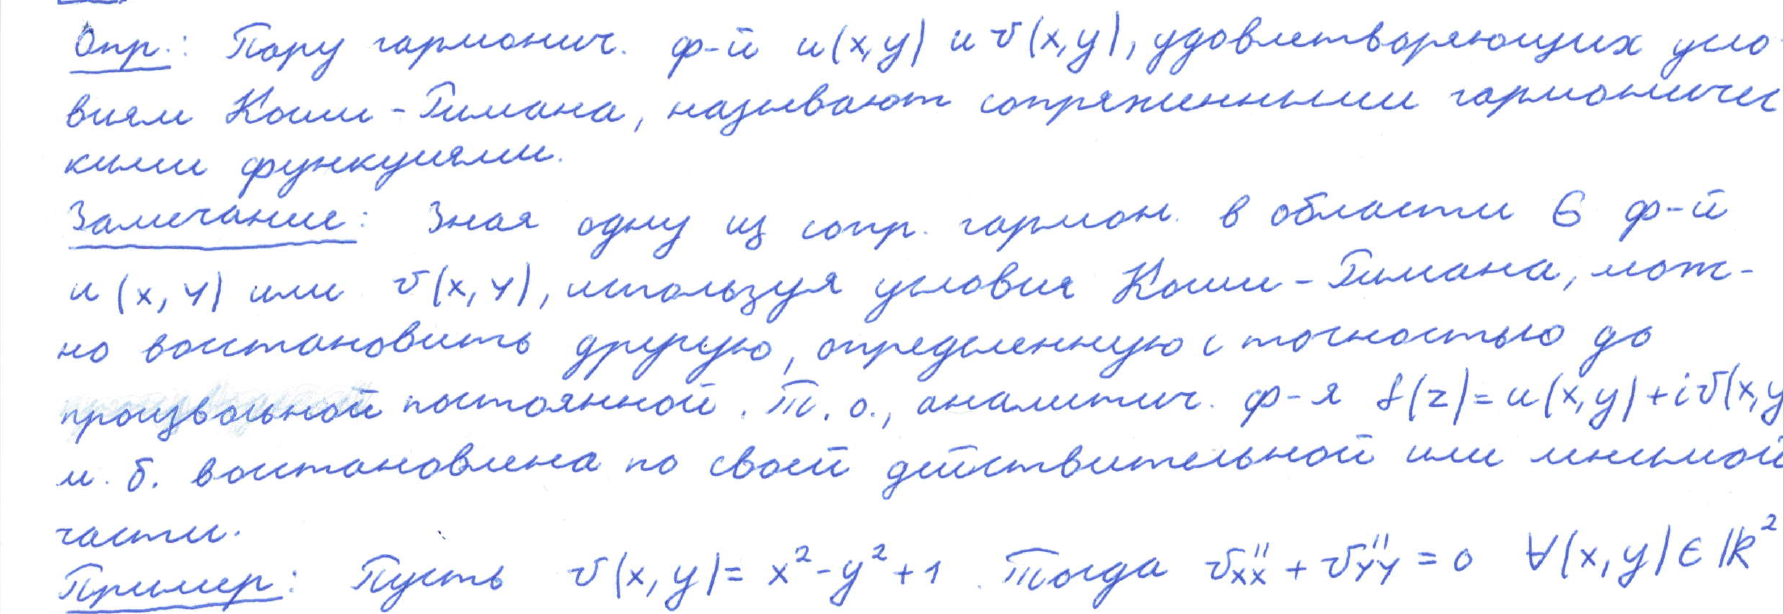 Опр.: Пару гармонич. ф-й u(x,y) и v(x,y), удовлетворяющих усло
виям Коши-Римана, называют сопряженными гармоничес
кими функциями.
Замечание: Зная одну из сопр. гармон. в области G ф-й
u(x,y) или v(x,y), используя условия Коши-Римана, мож-
но восстановить другую, определенную с точностью до
произвольной постоянной. Т.о., аналитич. ф-я f(z)=u(x,y)+iv(x,y
м.б. восстановлена по своей действительной или мнимой
части.
Пример: Пусть v(x,y)=x²-y²+1. Тогда v''xx+v''yy=0 ∀(x,y)∈ℝ²